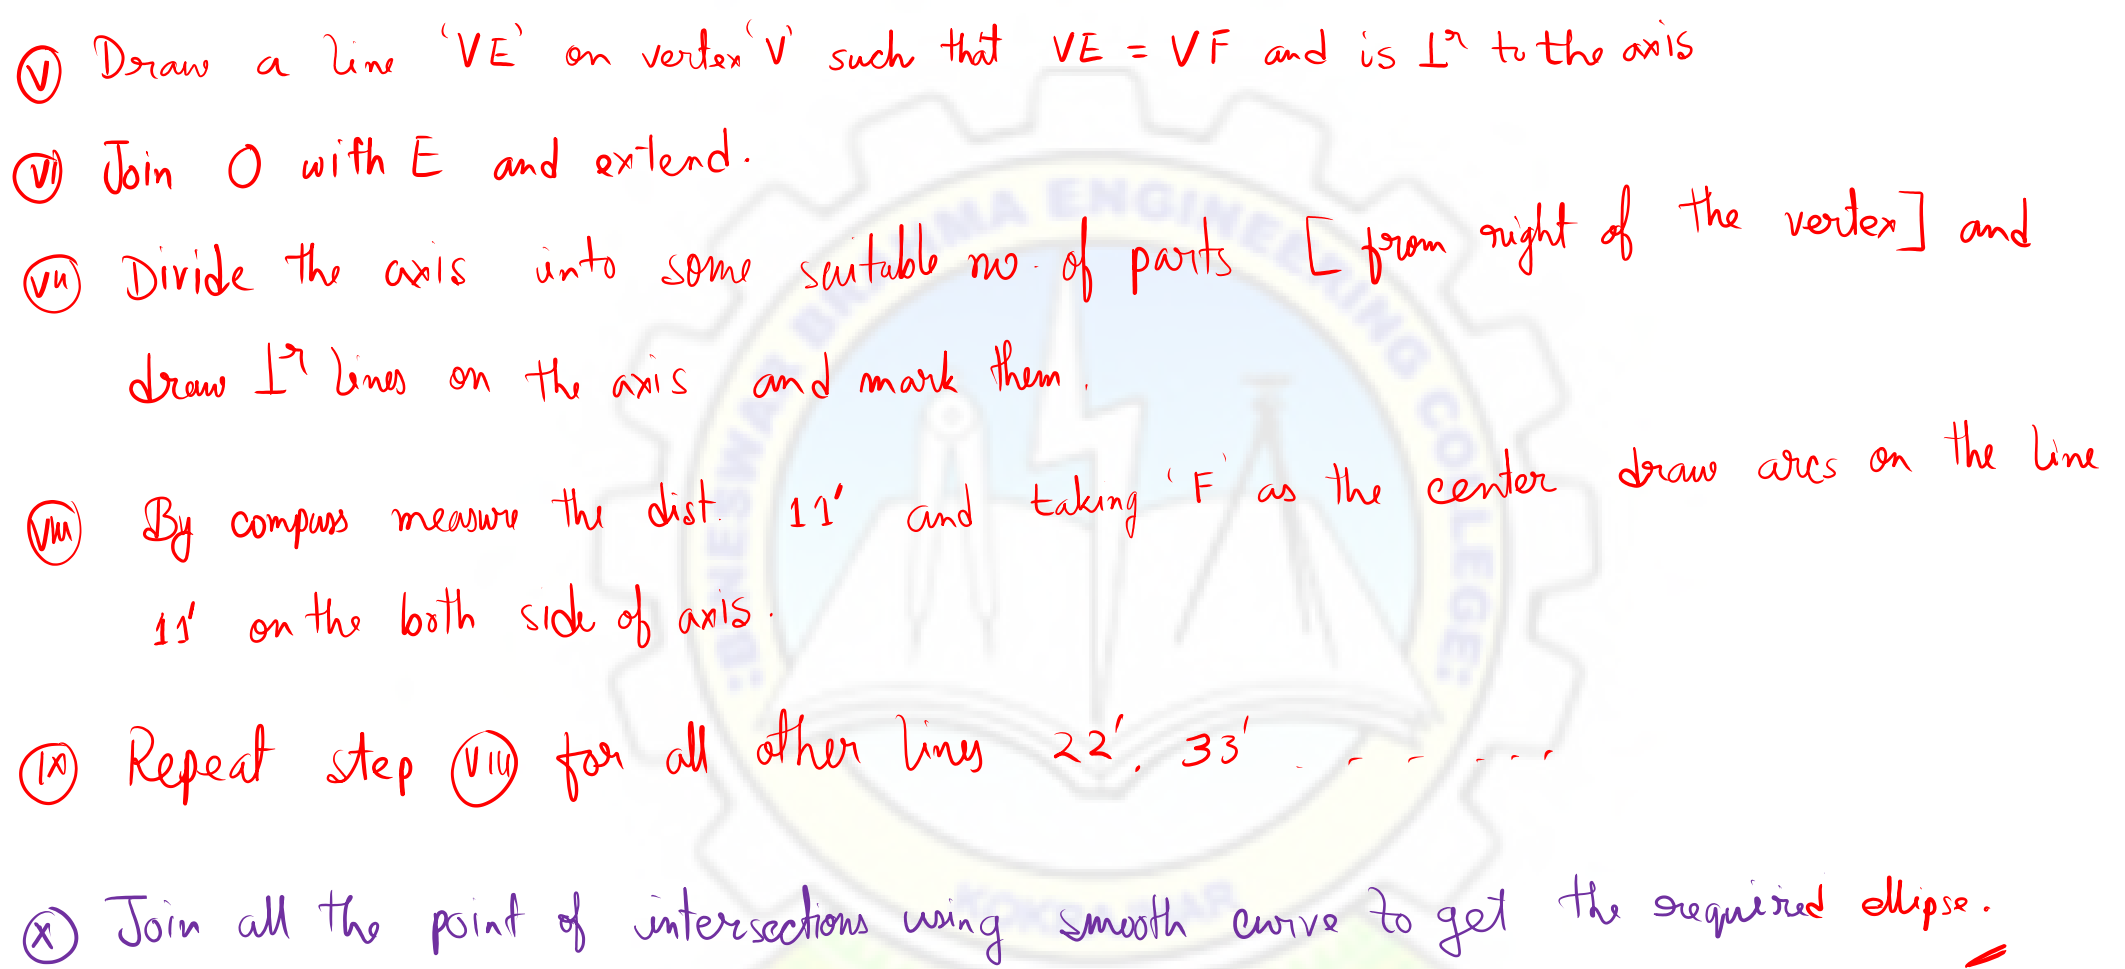 (v) Draw a line 'VE' on vertex 'V' such that VE = VF and is ⊥r to the axis
(vi) Join O with E and extend.
(vii) Divide the axis into some suitable no. of parts [from right of the vertex] and
draw ⊥r lines on the axis and mark them.
(viii) By compass measure the dist. 11' and taking 'F' as the center draw arcs on the line
11' on the both side of axis.
(ix) Repeat step (viii) for all other lines 22', 33' . - - - - -
(x) Join all the point of intersections using smooth curve to get the required ellipse.
:BINESWAR BRAHMA ENGINEERING COLLEGE:
KOKRAJHAR